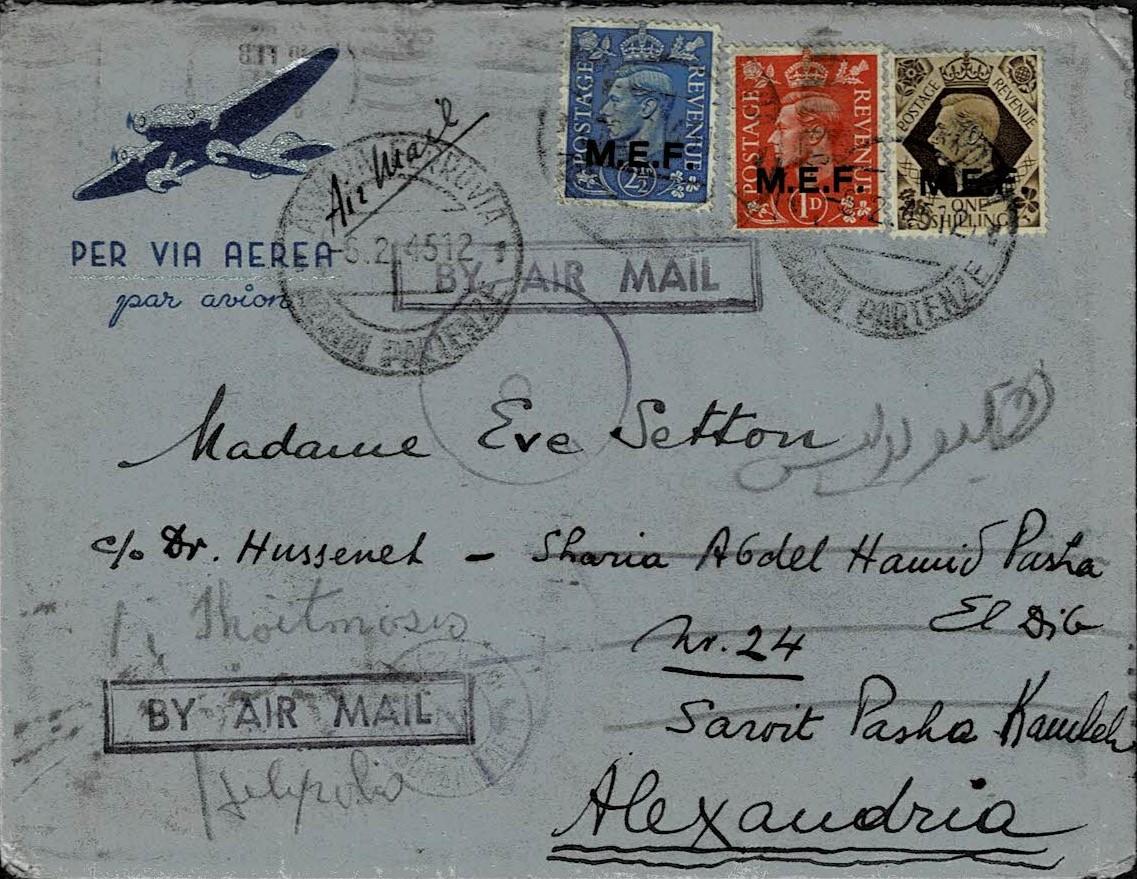 POSTAGE REVENUE
M.E.F.
2½D
POSTAGE REVENUE
M.E.F.
1D
POSTAGE REVENUE
M.E.F
ONE SHILLING
Air Mail
PER VIA AEREA
par avion
6.2.45 12
PARTENZE
PARTENZE
BY AIR MAIL
Madame Eve Setton
c/o Dr. Hussenet - Sharia Abdel Hamid Pasha
El Dib
Nr. 24
Sarvit Pasha
Alexandria
BY AIR MAIL